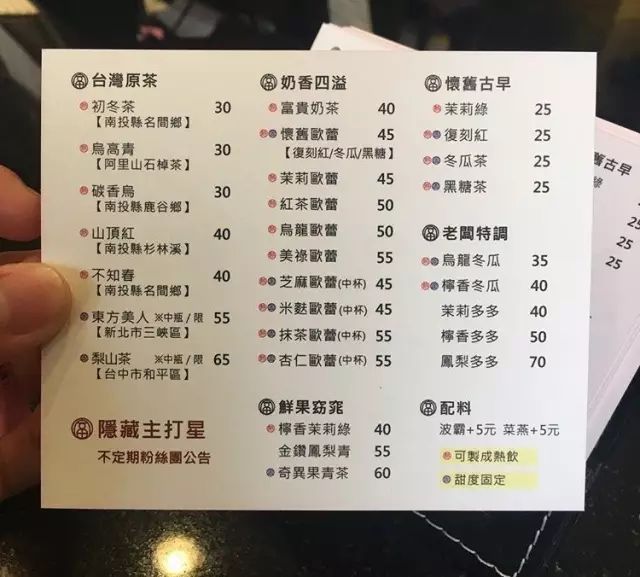 台灣原茶
初冬茶 30
【南投縣名間鄉】
烏高青 30
【阿里山石棹茶】
碳香烏 30
【南投縣鹿谷鄉】
山頂紅 40
【南投縣杉林溪】
不知春 40
【南投縣名間鄉】
東方美人 ※中瓶/限 55
【新北市三峽區】
梨山茶 ※中瓶/限 65
【台中市和平區】
隱藏主打星
不定期粉絲團公告
奶香四溢
富貴奶茶 40
懷舊歐蕾 45
【復刻紅/冬瓜/黑糖】
茉莉歐蕾 45
紅茶歐蕾 50
烏龍歐蕾 50
美祿歐蕾 55
芝麻歐蕾(中杯) 45
米麩歐蕾(中杯) 45
抹茶歐蕾(中杯) 55
杏仁歐蕾(中杯) 55
鮮果窈窕
檸香茉莉綠 40
金鑽鳳梨青 55
奇異果青茶 60
懷舊古早
茉莉綠 25
復刻紅 25
冬瓜茶 25
黑糖茶 25
老闆特調
烏龍冬瓜 35
檸香冬瓜 40
茉莉多多 40
檸香多多 50
鳳梨多多 70
配料
波霸+5元 菜燕+5元
熱 可製成熱飲
固 甜度固定
舊古早
綠
25
25
25